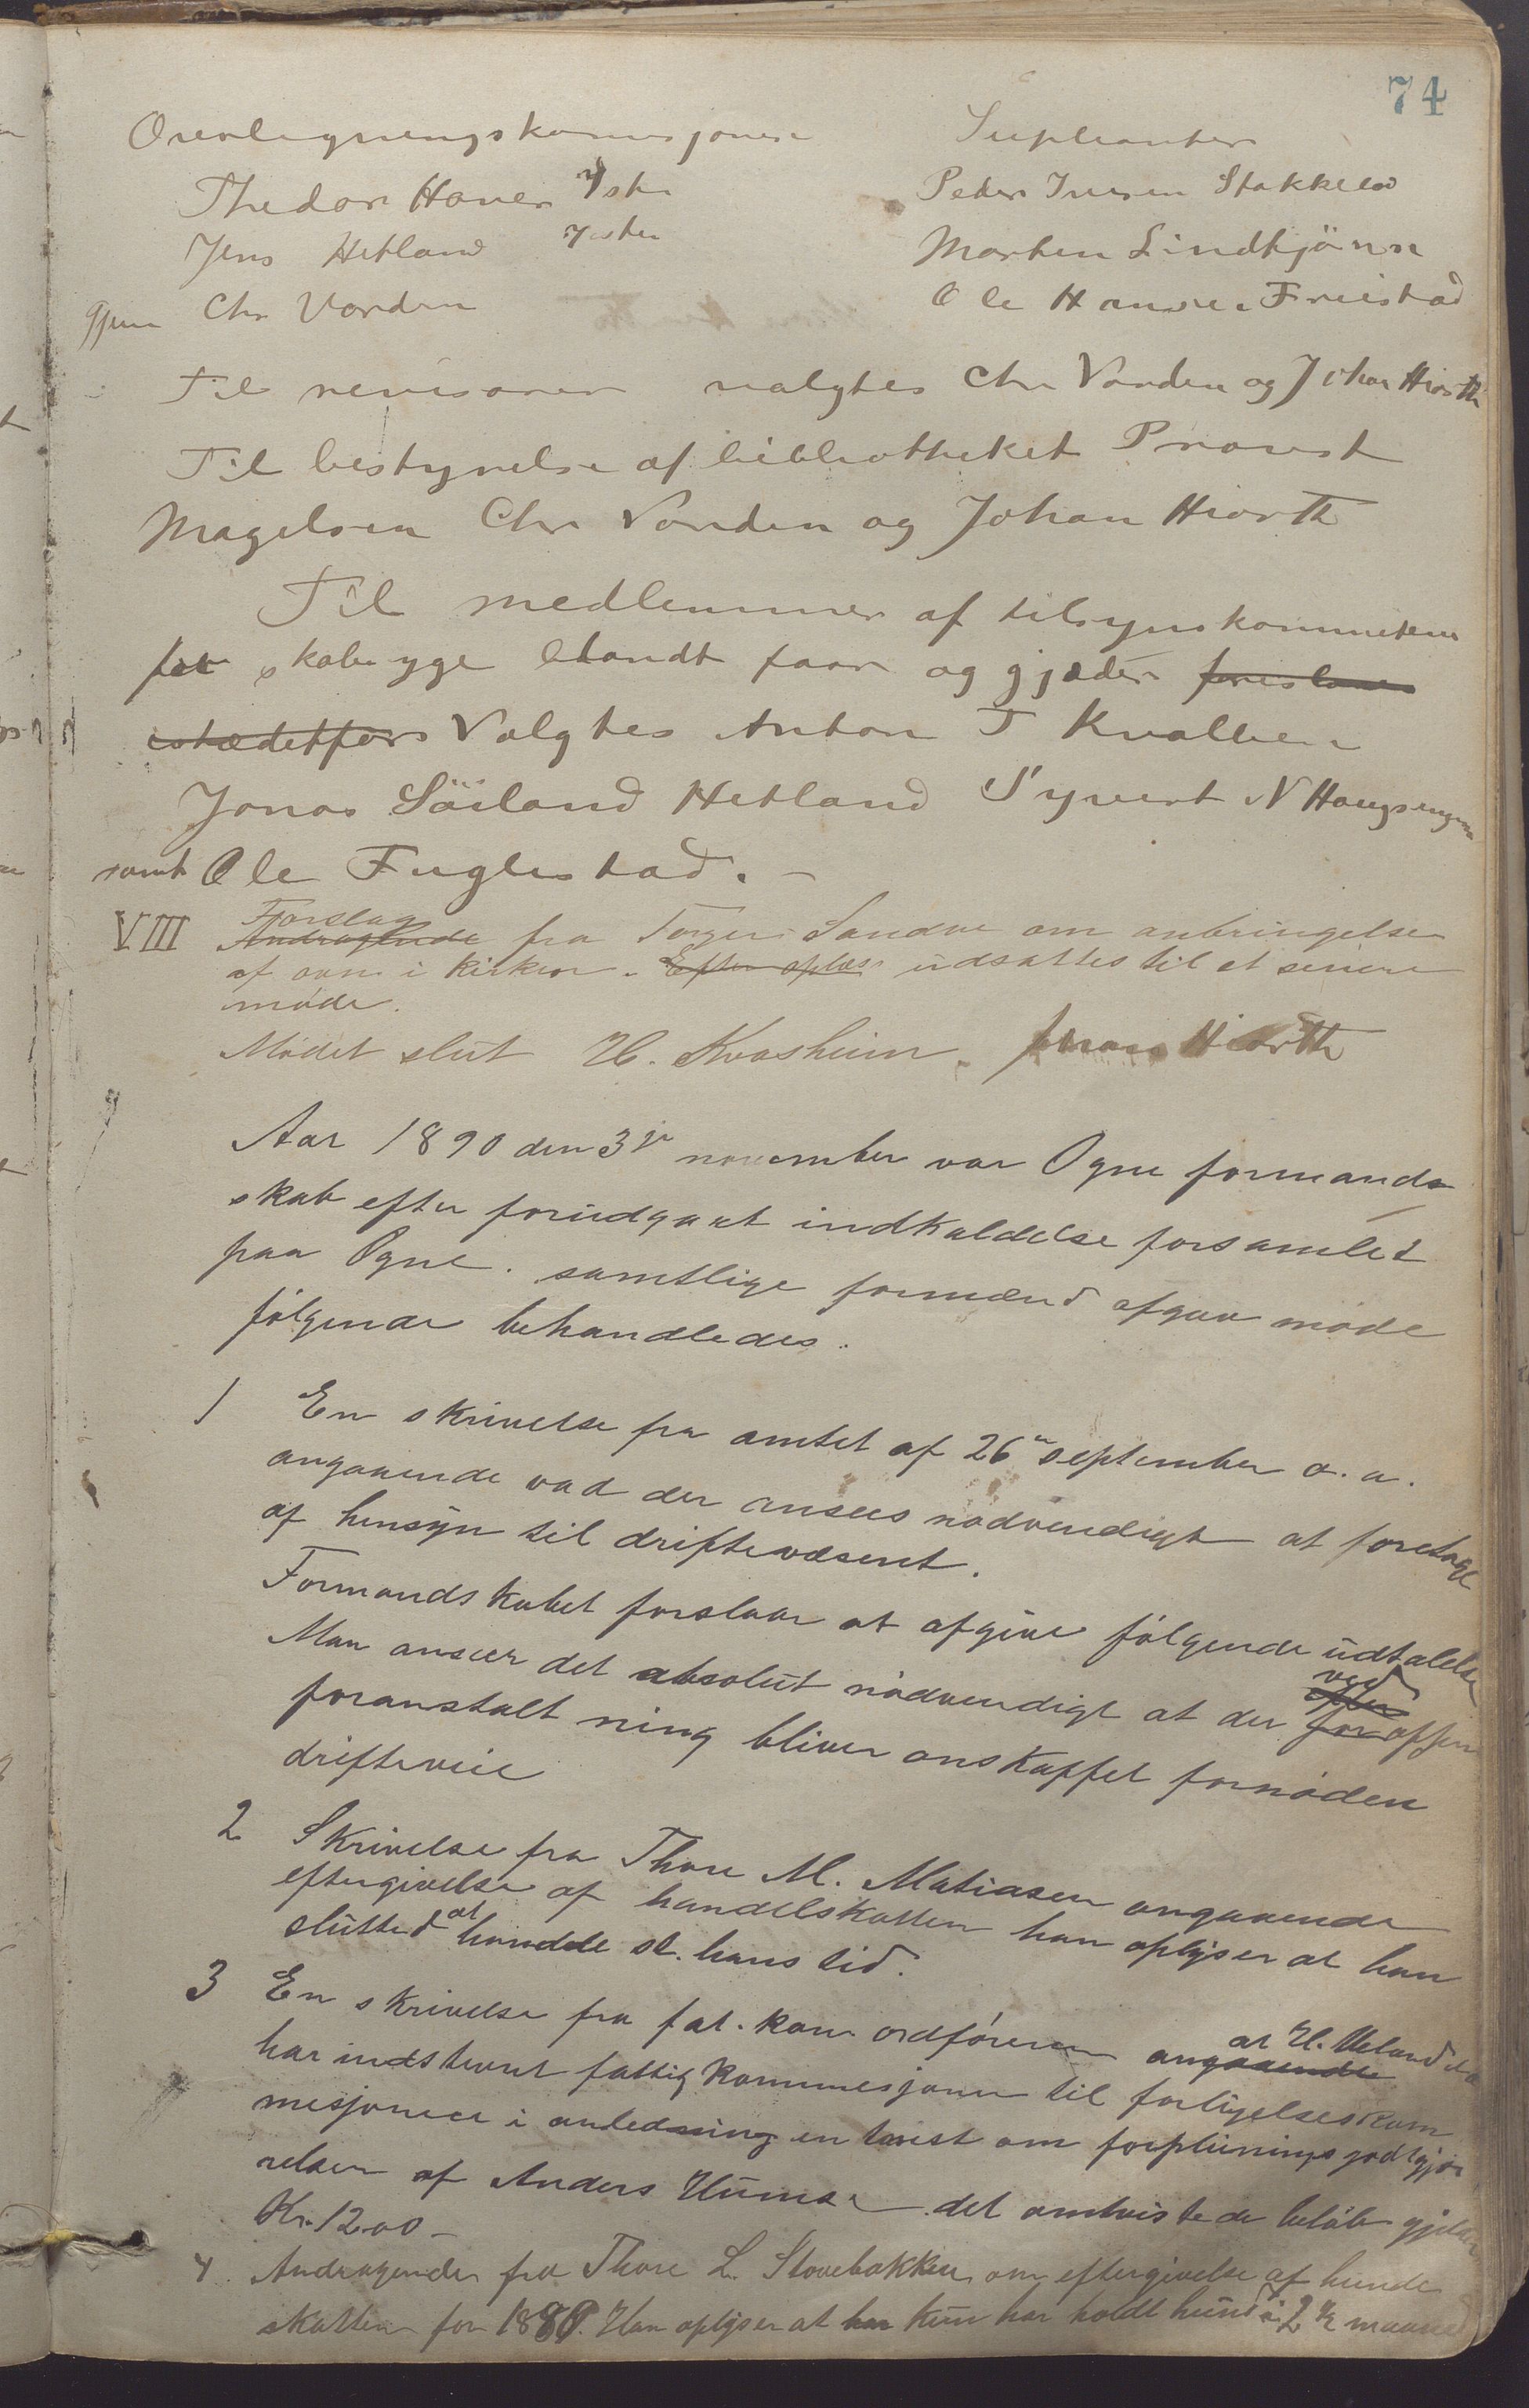 74
Overligningskomisjonen Supleanter
Thedor Haver Ister Peder Iversen Stokkeland
Jens Hetland Morten Lindtjörn
gjen Chr Varden Ole Hansen Freistad
Til revisorer valgtes Chr Varden og Johan Hiorth
Til bestyrelse af bibliotheket Provst
Magelsen Chr Varden og Johan Hiorth
Til medlemmer af tilsynskommiteen
for skabsyge blandt faar og gjæder foreslaaes
istædetfor Valgtes Anton T Kvalbein
Jonas Söiland Hetland Syvert N Haugsengen
samt Ole Fuglestad.
VIII Forslag
Andragende fra Torger Sandve om anbringelse
af ovn i kirken. Efter oplæs udsattes til et senere
møde.
Mødet slut H. Kvasheim. Johan Hiorth
Aar 1890 den 3je november var Ogne formand-
skab efter forudgaaet indkaldelse forsamlet
paa Ogne. samtlige formænd afgav møde
følgende behandledes.
1 En skrivelse fra amtet af 26n september d. a.
angaaende vad der ansees nødvendigt at foretage
af hensyn til driftevæsenet.
Formandskabet forslaar at afgive følgende udtalelse
Man anseer det absolut nødvendigt at der efter for ved offen
foranstaltning bliver anskaffet fornøden
drifteveie
2 Skrivelse fra Thore M. Matiasen angaaende
eftergivelse af handelskatten han oplyser at han
slutted at handle st. hans tid.
3 En skrivelse fra fat. kom ordføreren angaaende at H. Ueland
har indstevnt fattigkommesjonen til forligelseskom
mesjonen i anledning en tvist om forpleinings godtgjø
relsen af Anders Humse det omtvistede beløb gjelder
Kr. 12.00 –
4. Andragende fra Thore L. Stovebakken om eftergivelse af hunde
skatten for 1889. Han oplyser at han kun har holdt hund i 2 1/2 maaned